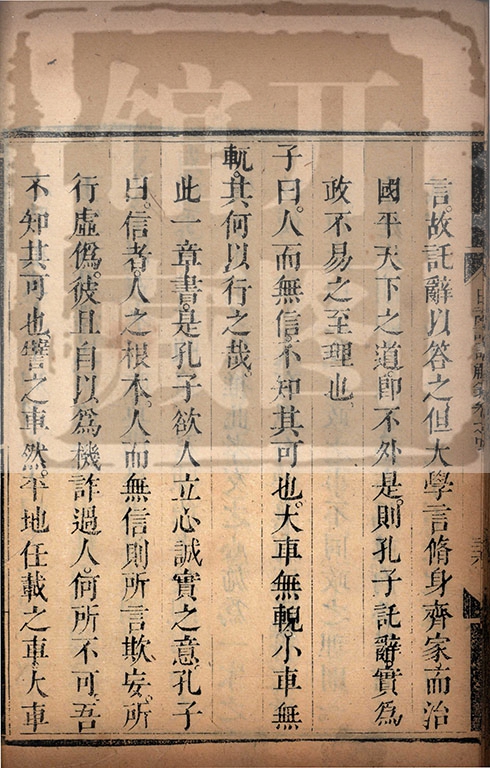 言。故託辭以答之但大學言脩身齊家而治
國平天下之道。即不外是。則孔子託辭。實為
政不易之至理也。
子曰。人而無信。不知其可也。大車無輗。小車無
軏。其何以行之哉。
此一章書。是孔子欲人立心誠實之意。孔子
曰。信者。人之根本。人而無信。則所言欺妄。所
行虛僞。彼且自以爲機詐過人。何所不可。吾
不知其可也。譬之車然。平地任載之車。大車